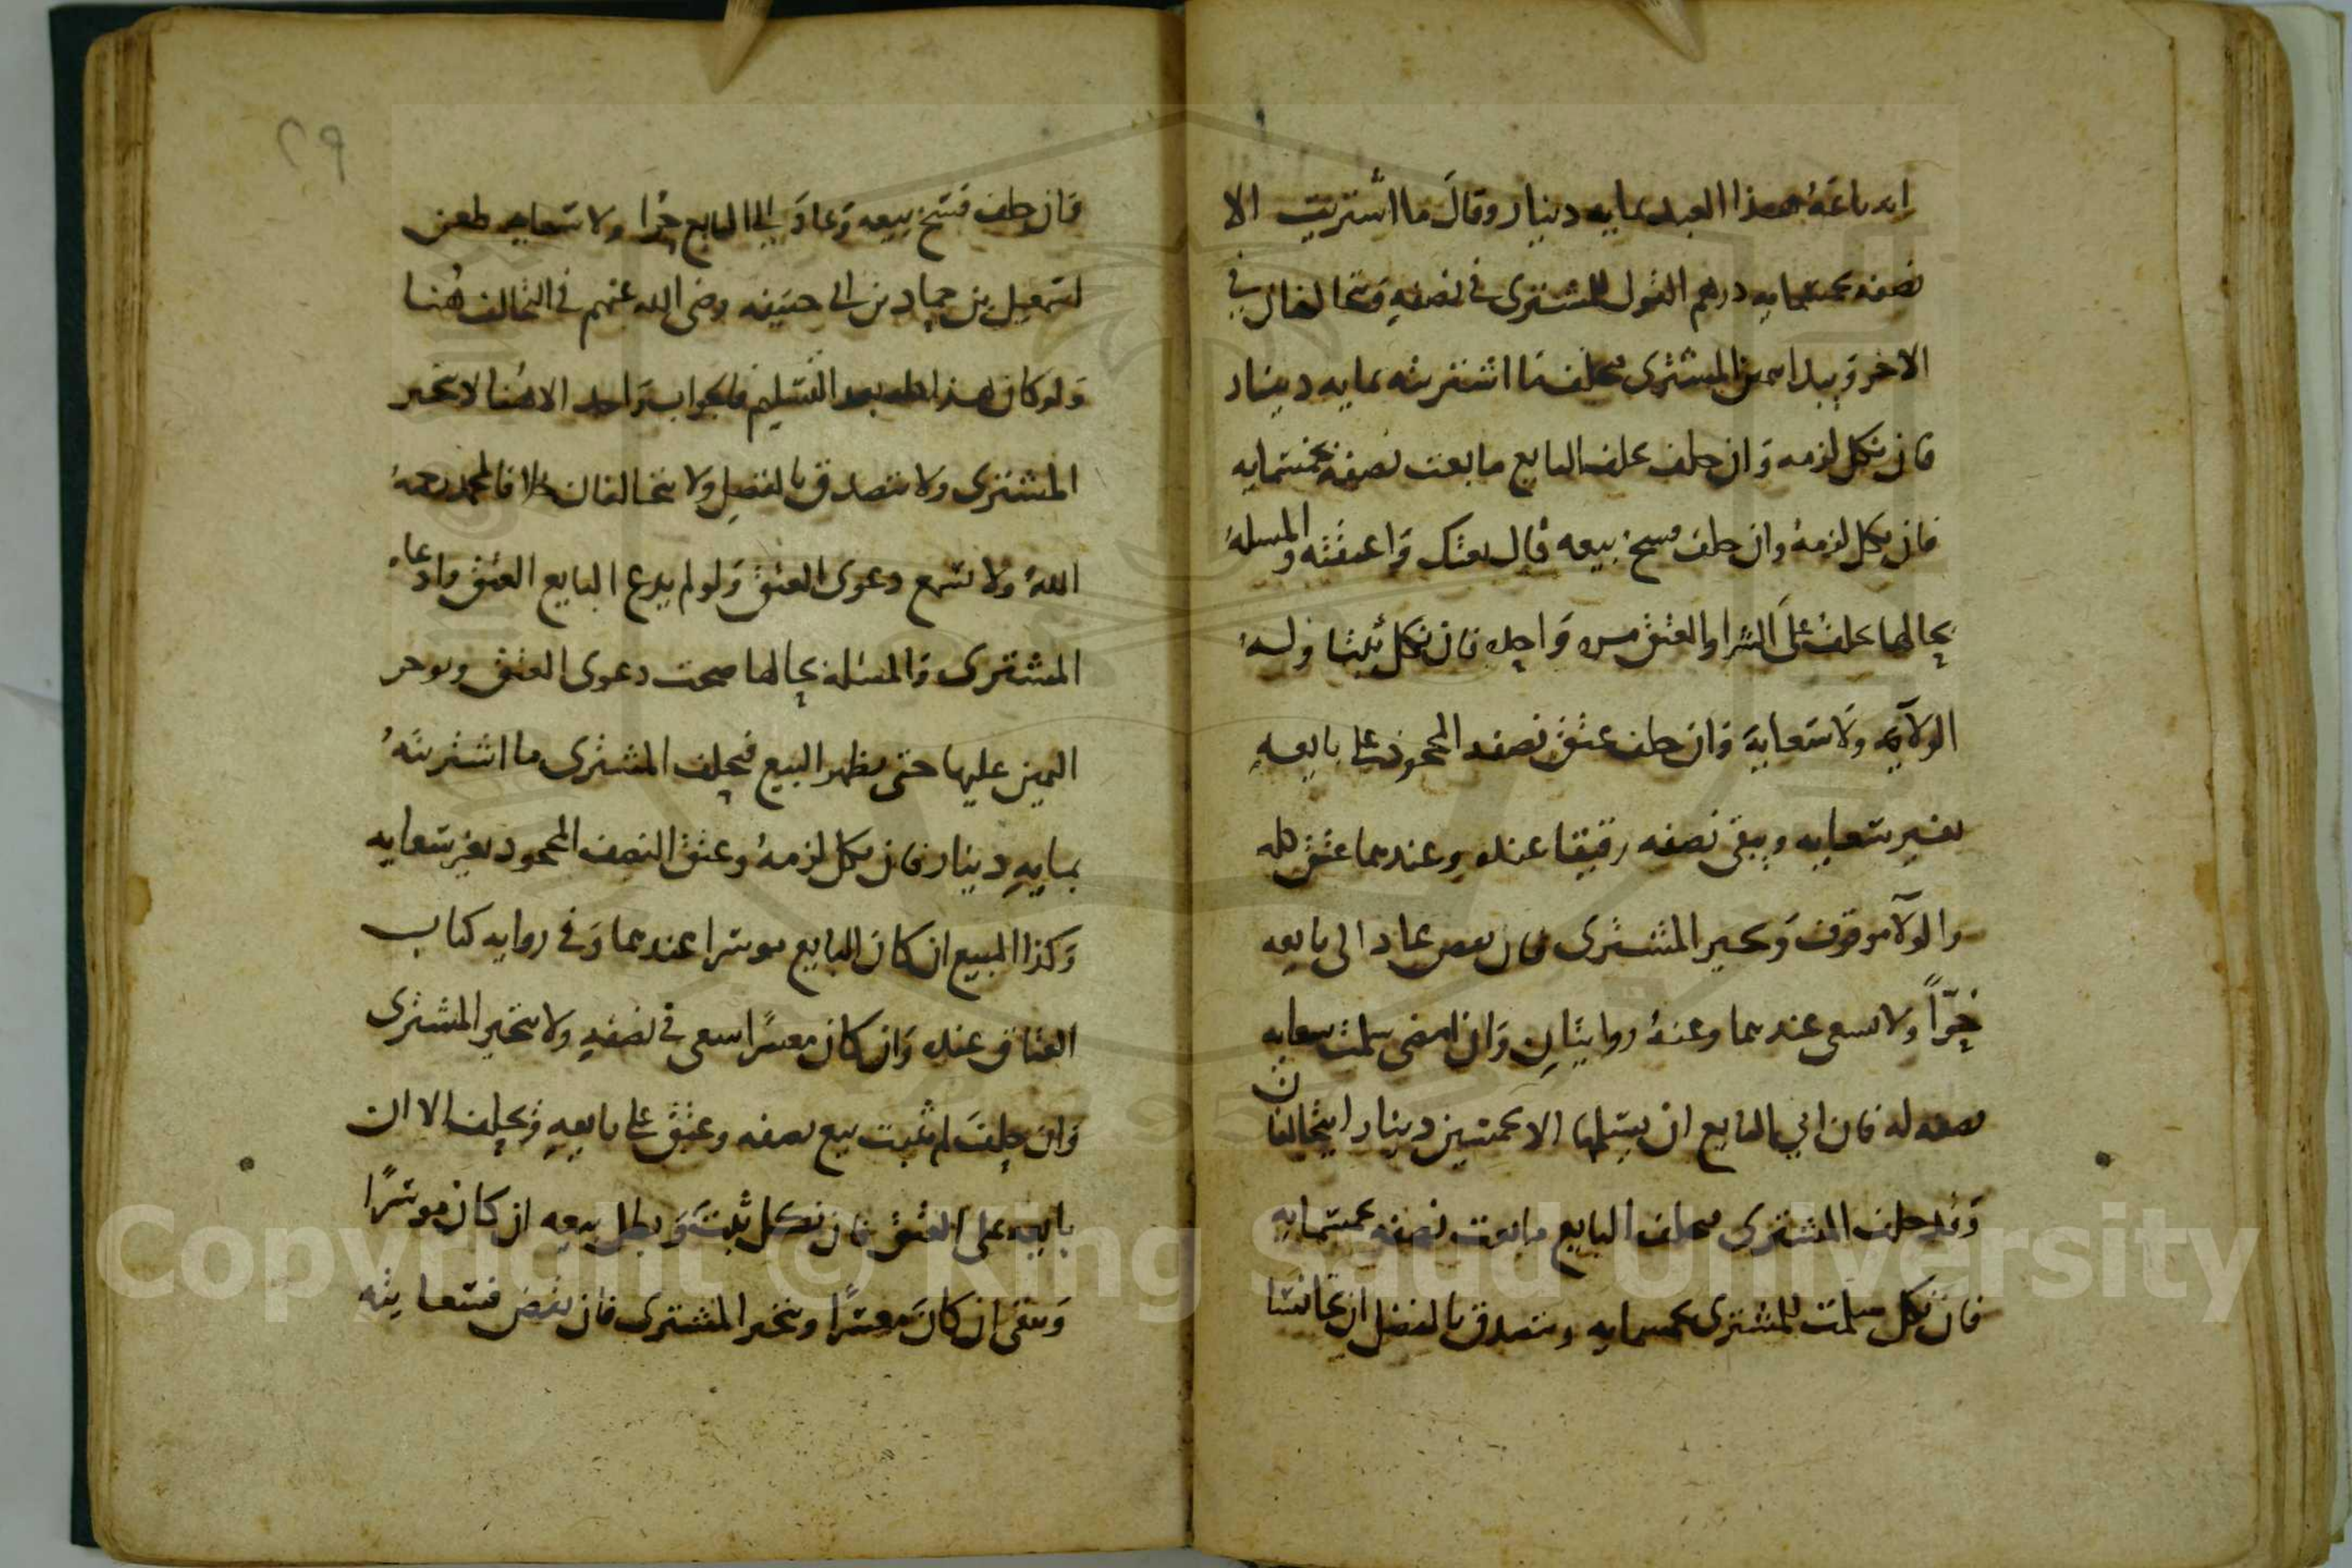 انه باعه هذا العبد بمايه دينار وقال ما اشتريت الا
نصفه بخمسمايه درهم القول للمشتري في نصفه ويتحالفان في
الاخر ويبدا بيمين المشتري يحلف ما اشتريته بمايه دينار
فان نكل لزمه وان حلف يحلف البايع ما بعت نصفه بخمسمايه
فان نكل لزمه وان حلف فسخ بيعه قال بعتك واعتقته والمسله
بحالها يحلف على الشرا والعتق مره واحده فان نكل ثبتا وله
الولاء ولا سعايه وان حلف عتق نصفه المجحود على بايعه
بغير سعايه ويبقى نصفه رقيقا عنده وعندهما عتق كله
والولاء موقوف ويخير المشتري فان نقض عاد الى بايعه
حرا ولا يسعى عندهما وعنه روايتان وان امضى سلمت سعايه
نصفه له فان ابي البايع ان يسلمها الا بخمسين دينارا يتحالفان
وقد حلف المشتري يحلف البايع ما بعت نصفه بخمسمايه
فان نكل سلمت للمشتري بخمسمايه ويتصدق بالفضل ان تجانسا
٢٩
فان حلف فسخ بيعه وعاد الى البايع حرا ولا سعايه طعن
اسمعيل بن حماد بن ابي حنيفه رضي الله عنهم في التحالف هنا
ولو كان هذا كله بعد التسليم فالجواب واحد الا هنا لا يخير
المشتري ولا يتصدق بالفضل ولا يتحالفان خلافا لمحمد رحمه
الله ولا تسمع دعوى العتق ولو لم يدع البايع العتق وادعاه
المشتري والمسله بحالها صحت دعوى العتق ويوخر
اليمين عليها حتى يظهر البيع فيحلف المشتري ما اشتريته
بمايه دينار فان نكل لزمه وعتق النصف المجحود بغير سعايه
وكذا المبيع ان كان البايع موسرا عندهما وفي روايه كتاب
العتاق عنده وان كان معسرا سعى في نصفه ولا يتخير المشتري
وان حلف لم يثبت بيع نصفه وعتق على بايعه ويحلف الا ان
بايعه على العتق فان نكل ثبت وبطل بيعه ان كان موسرا
وبقى ان كان معسرا ويخير المشتري فان نقض فسعايته
Copyright © King Saud University